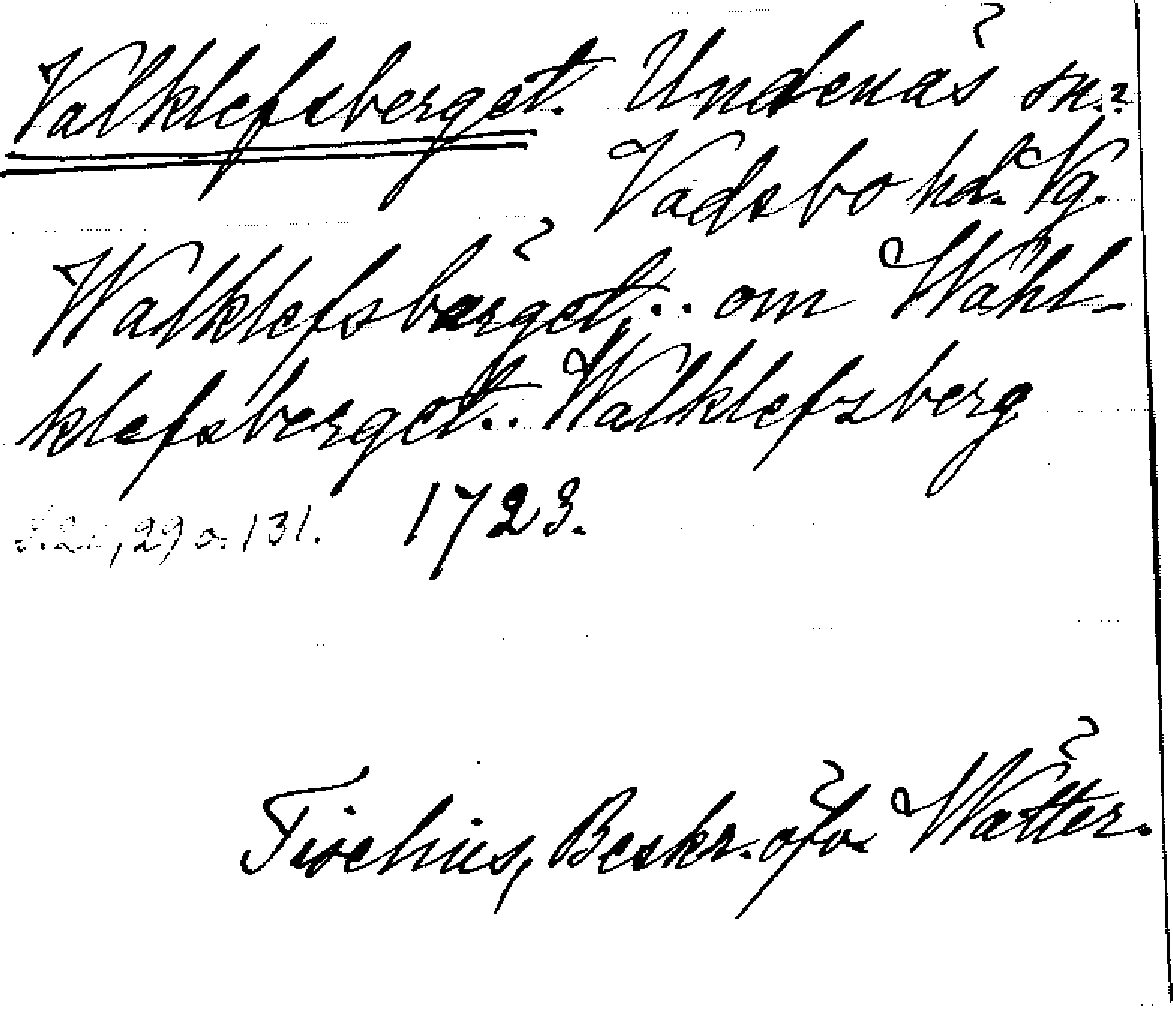 Valklefsberget. Undenäs sn.
Vadsbo hd. Vg.
Walklefsbärget.. om Wahl-
klefsberget.. Walklefsberg
29 o. 131. 1723.
Tiselius, Beskr. öfv. Wätter.